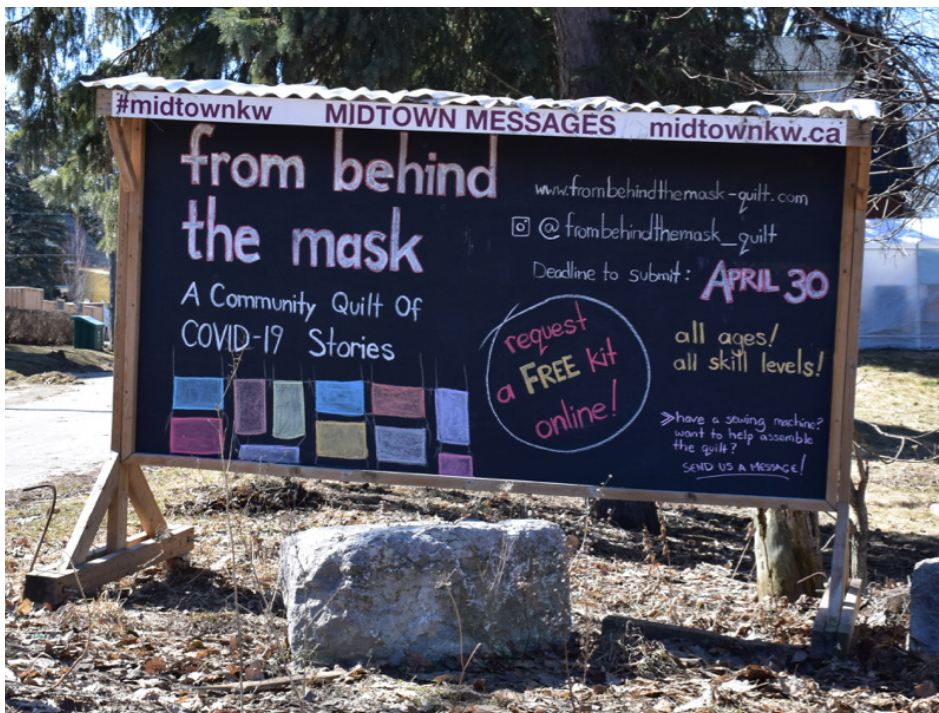 #midtownkw MIDTOWN MESSAGES midtownkw.ca
from behind
the mask
A Community Quilt Of
COVID-19 Stories
www.frombehindthemask-quilt.com
@frombehindthemask_quilt
Deadline to submit: APRIL 30
request
a FREE kit
online!
all ages!
all skill levels!
»have a sewing machine?
want to help assemble
the quilt?
SEND US A MESSAGE!